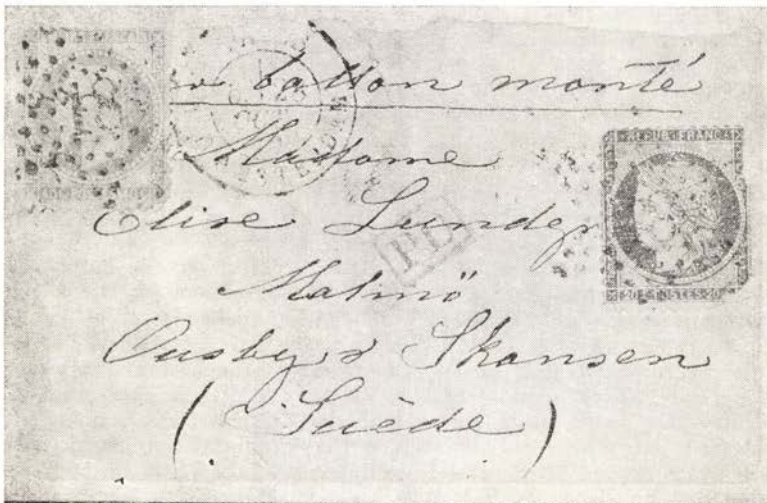 ballon monté
Madame
Elise Lunde
Malmö
Skansen
(Suède)
REPUB. FRANC.
PD
20 c. POSTES 20